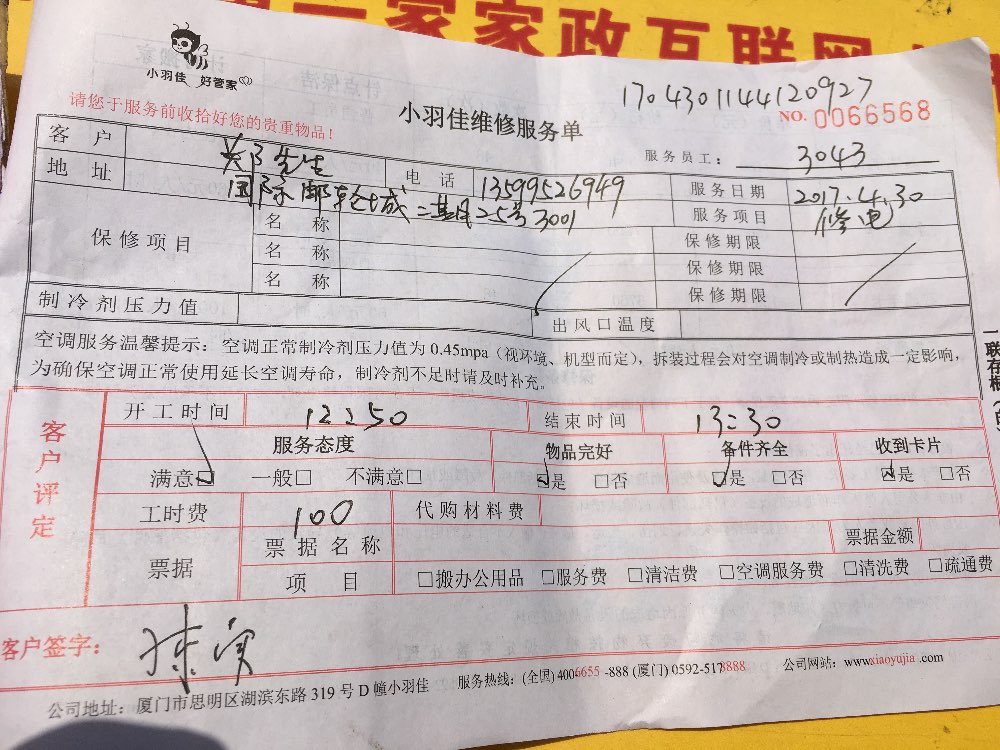 一家家政互联网
小羽佳 好管家
请您于服务前收拾好您的贵重物品!
小羽佳维修服务单
1704301144120927
NO. 0066568
服务员工: 3043
客户 先生 电话 13599526949 服务日期 2017.4.30
地址 国际邮轮城二期25号3001 服务项目 修电
保修项目 名称 保修期限
名称 保修期限
名称 保修期限
制冷剂压力值 出风口温度
空调服务温馨提示: 空调正常制冷剂压力值为 0.45mpa (视环境、机型而定), 拆装过程会对空调制冷或制热造成一定影响,
为确保空调正常使用延长空调寿命, 制冷剂不足时请及时补充。
一联存根
客户评定
开工时间 12:50 结束时间 13:30
服务态度 物品完好 备件齐全 收到卡片
满意☑ 一般□ 不满意□ ☑是 □否 ☑是 □否 ☑是 □否
工时费 100 代购材料费
票据 票据名称 票据金额
项目 □搬办公用品 □服务费 □清洁费 □空调服务费 □清洗费 □疏通费
客户签字:
公司地址: 厦门市思明区湖滨东路 319 号 D 幢小羽佳 服务热线: (全国) 4006655-888 (厦门) 0592-5178888 公司网站: www.xiaoyujia.com